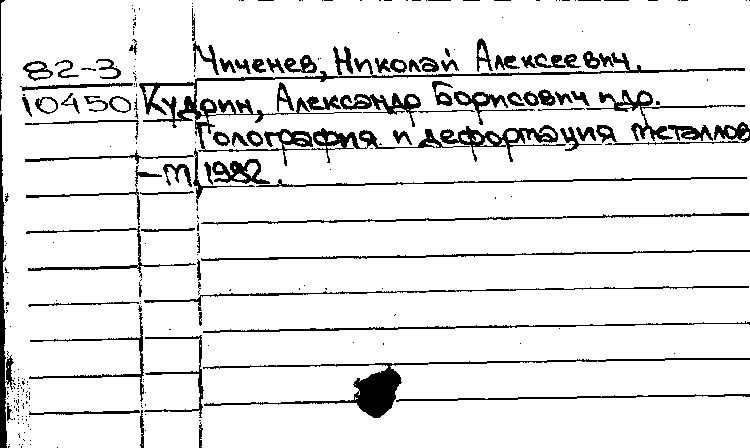 82-3 Чиченев, Николай Алексеевич.
10450 Кудрин, Александр Борисович и др.
Голография и деформация металлов
— М, 1982.